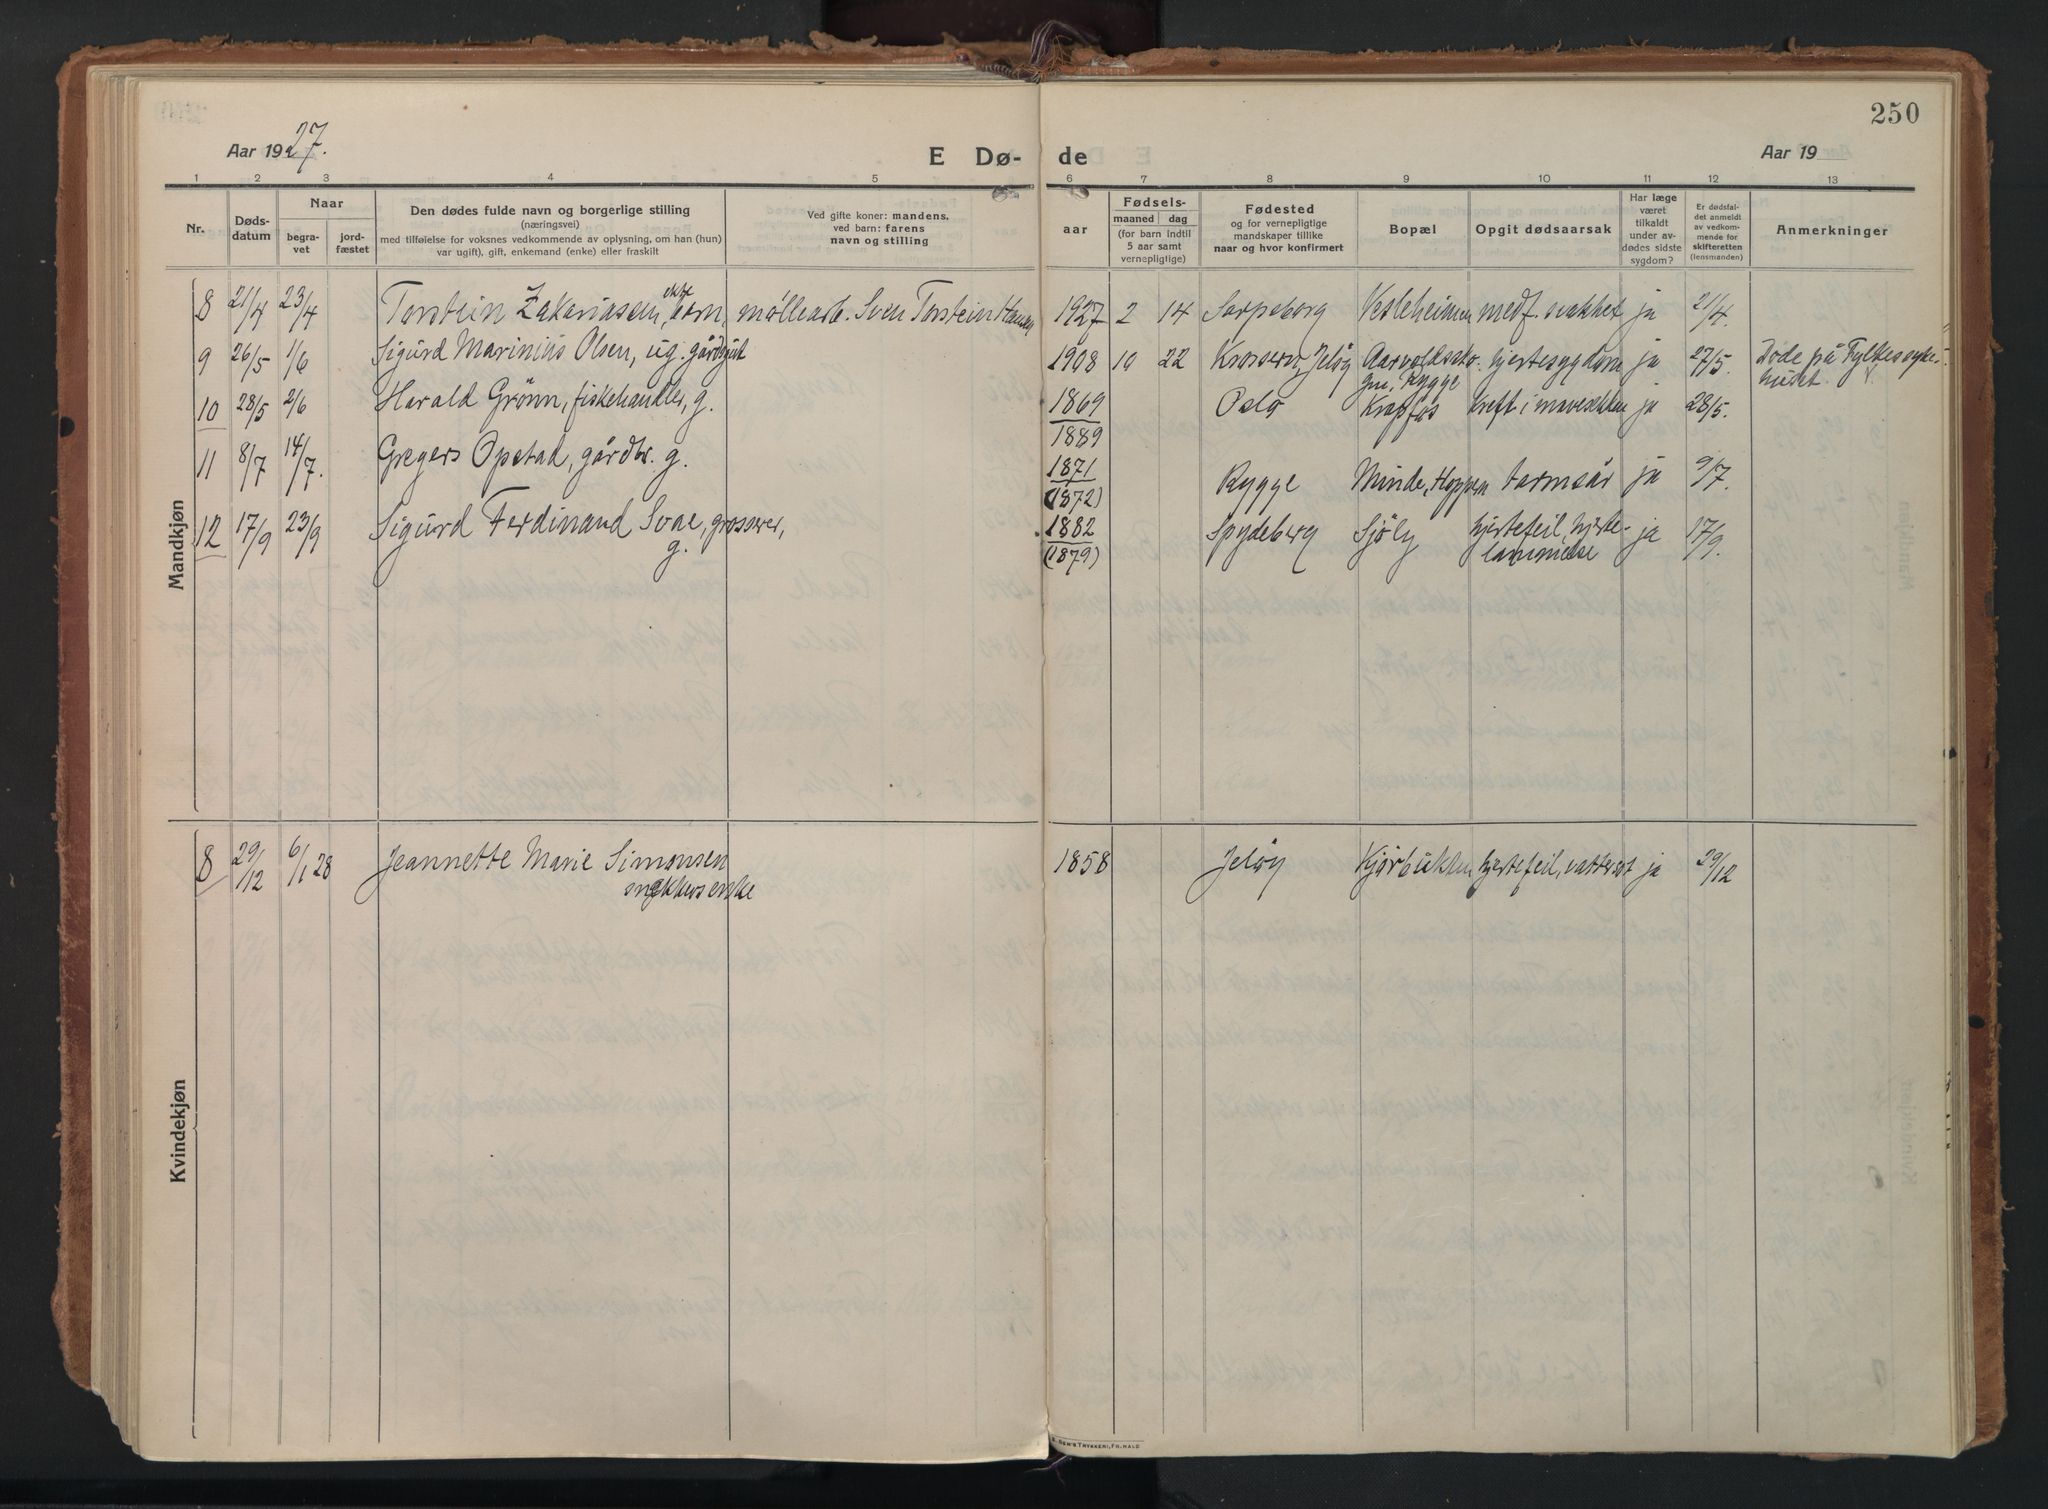 250
Aar 1927.
E Dø- de
Aar 19
1 2 3 4 5 6 7 8 9 10 11 12 13
Nr.
Døds-
datum
Naar
begra-
vet
jord-
fæstet
Den dødes fulde navn og borgerlige stilling
(næringsvei)
med tilføielse for voksnes vedkommende av oplysning, om han (hun)
var ugift), gift, enkemand (enke) eller fraskilt
Ved gifte koner: mandens,
ved barn: farens
navn og stilling
Fødsels-
aar
maaned dag
(for barn indtil
5 aar samt
vernepligtige)
Fødested
og for vernepligtige
mandskaper tillike
naar og hvor konfirmert
Bopæl
Opgit dødsaarsak
Har læge
været
tilkaldt
under av-
dødes sidste
sygdom?
Er dødsfal-
det anmeldt
av vedkom-
mende for
skifteretten
(lensmanden)
Anmerkninger
Mandkjøn
8 21/4 23/4 Torstein Zakariassen, ekte barn, møllearb. Sven Torstein Hansen 1927 2 14 Sarpsborg Vesleheimen medf. svakhet ja 21/4.
9 26/5 1/6 Sigurd Marinius Olsen, ug. gårdsgut 1908 10 22 Krossern, Jeløy Aarvoldssko- hjertesygdom ja 27/5. Døde på Fylkessyke-
gen, Rygge huset.
10 28/5 2/6 Harald Grønn, fiskehandler, g. 1869 Oslo Krapfos kreft i mavesekken ja 28/5.
1889
11 8/7 14/7. Gregers Opstad, gårdbr. g. 1871 Rygge Minde, Hoppern tarmsår ja 9/7.
(1872)
12 17/9 23/9 Sigurd Ferdinand Svae, grosserer, 1882 Spydeberg Sjøly hjertefeil, hjerte- ja 17/9.
g. (1879) lammelse
Kvindekjøn
8 29/12 6/1 28 Jeannette Marie Simonsen 1858 Jeløy Kjørbukten hjertefeil, vattersot ja 29/12
snekkersenke
SEN'S TRYKKERI, FR.HALD